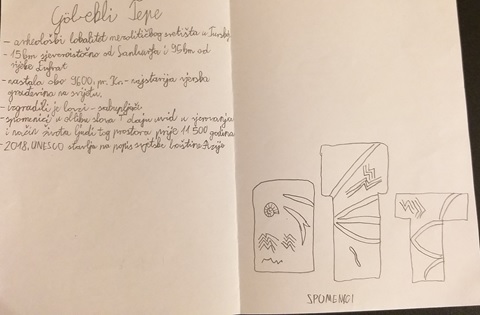 Göbekli Tepe
- arheološki lokalitet neolitičkog svetišta u Turskoj
- 15 km sjeveroistočno od Sanliurfa i 96 km od
rijeke Eufrat
- nastala oko 9600. pr. Kr. - najstarija vjerska
građevina na svijetu.
- izgradili je lovci - sakupljači
- spomenici u obliku slova T daju uvid u vjerovanja
i način života ljudi tog prostora prije 11 500 godina
- 2018. UNESCO stavlja na popis svjetske baštine Azije
SPOMENICI